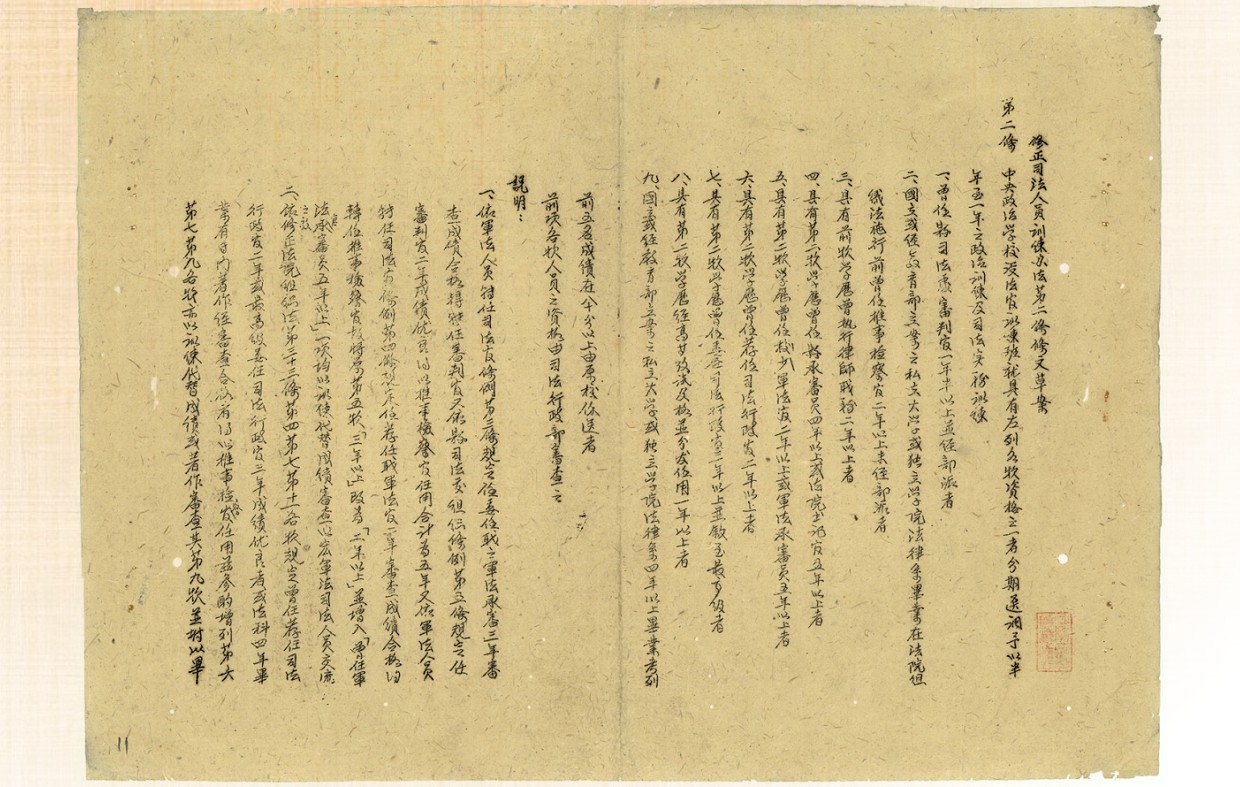 修正司法人員訓練办法第二條條文草案
第二條　中央政治学校設法官訓練班就具有左列各欵資格之一者分期選調予以半
年至一年之政治訓練及司法实務訓練
一、曾任縣司法處審判官一年半以上並經部派者
二、國立或經教育部立案之私立大学或独立学院法律系畢業在法院組
織法施行前曾任推事檢察官二年以上未經部派者
三、具有前欵学歷曾执行律師职務二年以上者
四、具有第二欵学歷曾任縣承審員四年以上或法院书记官五年以上者
五、具有第二欵学歷曾任校少軍法官二年以上或軍法承審員五年以上者
六、具有第二欵学歷曾任荐任司法行政官二年以上者
七、具有第二欵学歷曾任委任司法行政官三年以上並敘至最高级者
八、具有第二欵学歷經高等考試及格並分发任用一年以上者
九、國立或經教育部立案之私立大学或独立学院法律系四年以上畢業考列
前五名成績在八十分以上由原校保送者
前項各欵人員之資格由司法行政部審查之
說明：
一、依軍法人員轉任司法官條例第三條規定任委任职之軍法承審三年審
查成績合格得转任審判官又依縣司法處組织條例第五條規定任
審判官二年成績优良得以推事檢察官任用合計為五年又依軍法人員
转任司法官條例第四條規定任荐任职軍法官一年審查成績合格得
轉任推事檢察官故將第五欵「三年以上」改為「二年以上」並增入「曾任軍
法承審員五年以上」一項均以訓練代替成績審查以宏軍法司法人員交流
之效
二、依修正法院組织法第三十三條第四第七第十一各欵規定曾任荐任司法
行政官二年或最高级委任司法行政官三年成績优良者或法科四年畢
業有
著作經審查合格者得以推事檢察官任用兹參酌增列第六
第七第九各欵亦以訓練代替成績或著作審查其第九欵並附以畢
11